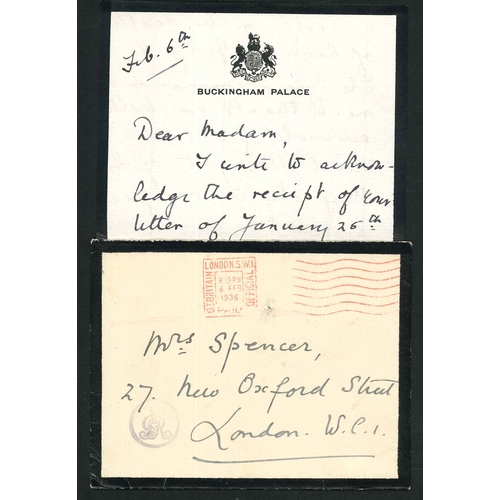 Feb. 6th
BUCKINGHAM PALACE
Dear Madam,
I write to acknow-
ledge the receipt of your
letter of January 25th
LONDON. S.W.1
GT. BRITAIN
OFFICIAL
6 FEB
1936
PAID
Mrs Spencer,
27. New Oxford Street
London. W.C.1.